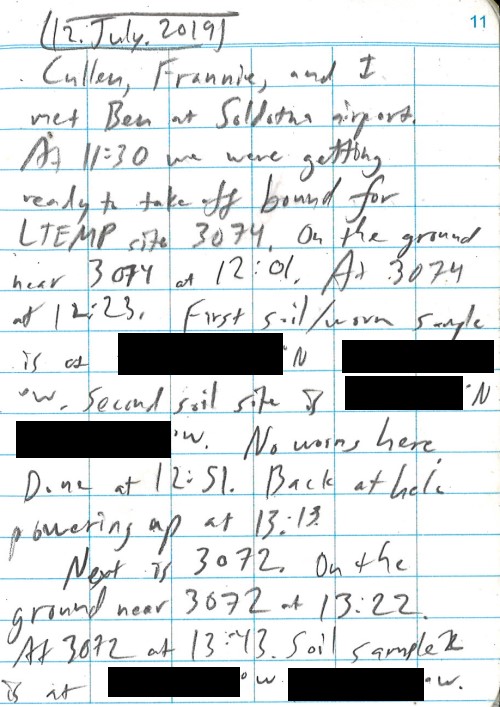 11
(12. July. 2019)
Cullen, Frannie, and I
met Ben at Soldotna airport.
At 11:30 we were getting
ready to take off bound for
LTEMP site 3074. On the ground
near 3074 at 12:01. At 3074
at 12:23. First soil/worm sample
is at °N
°W. Second soil site is °N
°W. No worms here.
Done at 12:51. Back at helo
powering up at 13:13.
Next is 3072. On the
ground near 3072 at 13:22.
At 3072 at 13:43. Soil sample
is at °W °W.